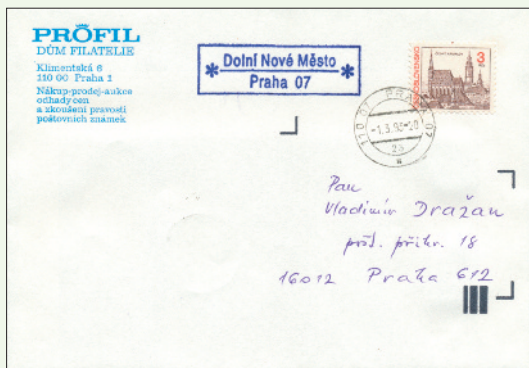 PRÖFIL
DŮM FILATELIE
Klimentská 6
110 00 Praha 1
Nákup-prodej-aukce
odhady cen
a zkoušení pravosti
poštovních známek
* Dolní Nové Město *
Praha 07
3
110 07 PRAHA 07
Pan
Vladimír Dražan
pošt. přihr. 18
16012 Praha 612